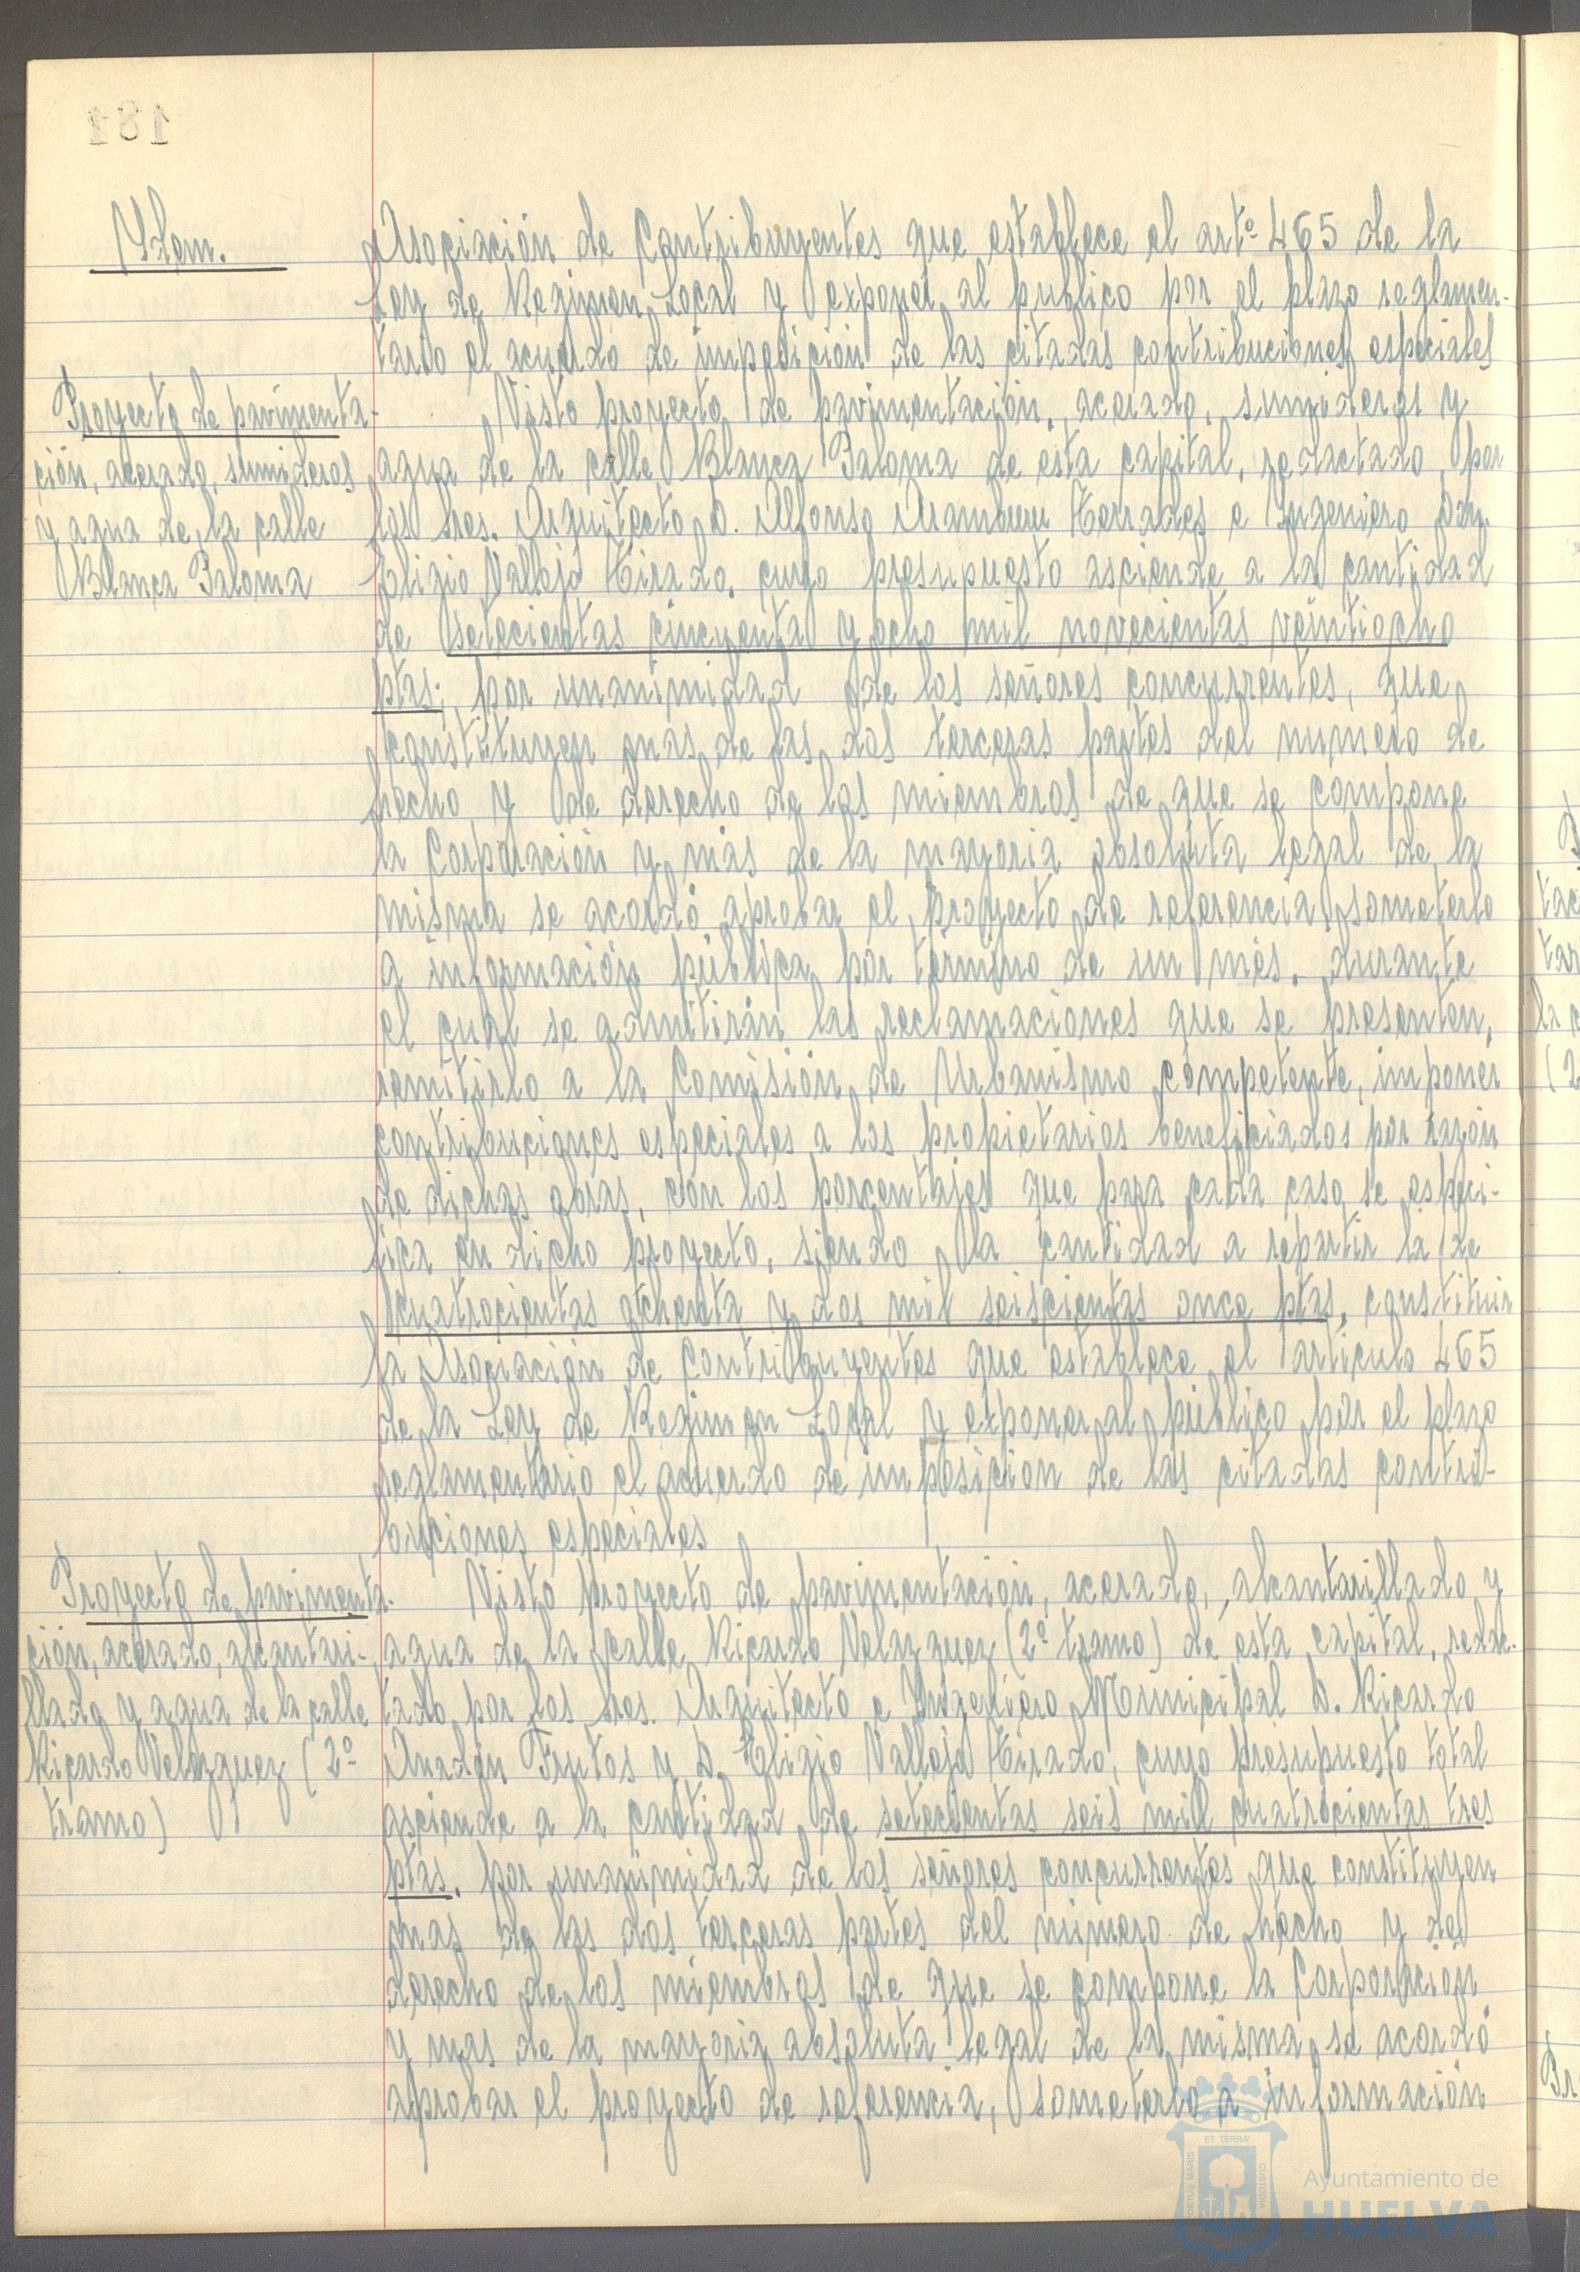 181
Ydem.
Asociación de Contribuyentes que establece el artº 465 de la
Ley de Regimen Local y exponer al publico por el plazo reglamen-
tario el acuerdo de imposición de las citadas contribuciones especiales
Proyecto de pavimenta-
ción, acerado, sumideros
y agua de la calle
Blanca Paloma
Visto proyecto de pavimentación, acerado, sumideros y
agua de la calle Blanca Paloma de esta capital, redactado por
los Sres. Arquitecto D. Alfonso Aramburu Terrades e Ingeniero Don
Eligio Vallejo Tirado, cuyo presupuesto asciende a la cantidad
de setecientas cincuenta y ocho mil novecientas veintiocho
ptas; por unanimidad de los señores concurrentes, que
constituyen mas de las dos terceras partes del numero de
hecho y de derecho de los miembros de que se compone
la Corporación y más de la mayoria absoluta legal de la
misma se acordó aprobar el proyecto de referencia, someterlo
a información pública por término de un mes, durante
el cual se admitirán las reclamaciones que se presenten,
remitirlo a la Comisión de Urbanismo competente, imponer
contribuciones especiales a los propietarios beneficiados por razón
de dichas obras, con los porcentajes que para cada caso se especi-
fica en dicho proyecto, siendo la cantidad a repartir la de
cuatrocientas ochenta y dos mil seiscientas once ptas, constituir
la Asociación de Contribuyentes que establece el articulo 465
de la Ley de Regimen Local y exponer al público por el plazo
reglamentario el acuerdo de imposición de las citadas contri-
buciones especiales
Proyecto de pavimenta-
ción, acerado, alcantari-
llado y agua de la calle
Ricardo Velazquez (2º
tramo)
Visto proyecto de pavimentación, acerado, alcantarillado y
agua de la calle Ricardo Velazquez (2º tramo) de esta capital, redac-
tado por los Sres. Arquitecto e Ingeniero Municipal D. Ricardo
Anadón Frutos y D. Eligio Vallejo Tirado, cuyo presupuesto total
asciende a la cantidad de setecientas seis mil cuatrocientas tres
ptas, por unanimidad de los señores concurrentes que constituyen
mas de las dos terceras partes del número de hecho y de
derecho de los miembros de que se compone la Corporación
y mas de la mayoria absoluta legal de la misma se acordó
aprobar el proyecto de referencia, someterlo a información
ET TERRÆ
PORTUS MARIS
CUSTODIA
Ayuntamiento de
HUELVA